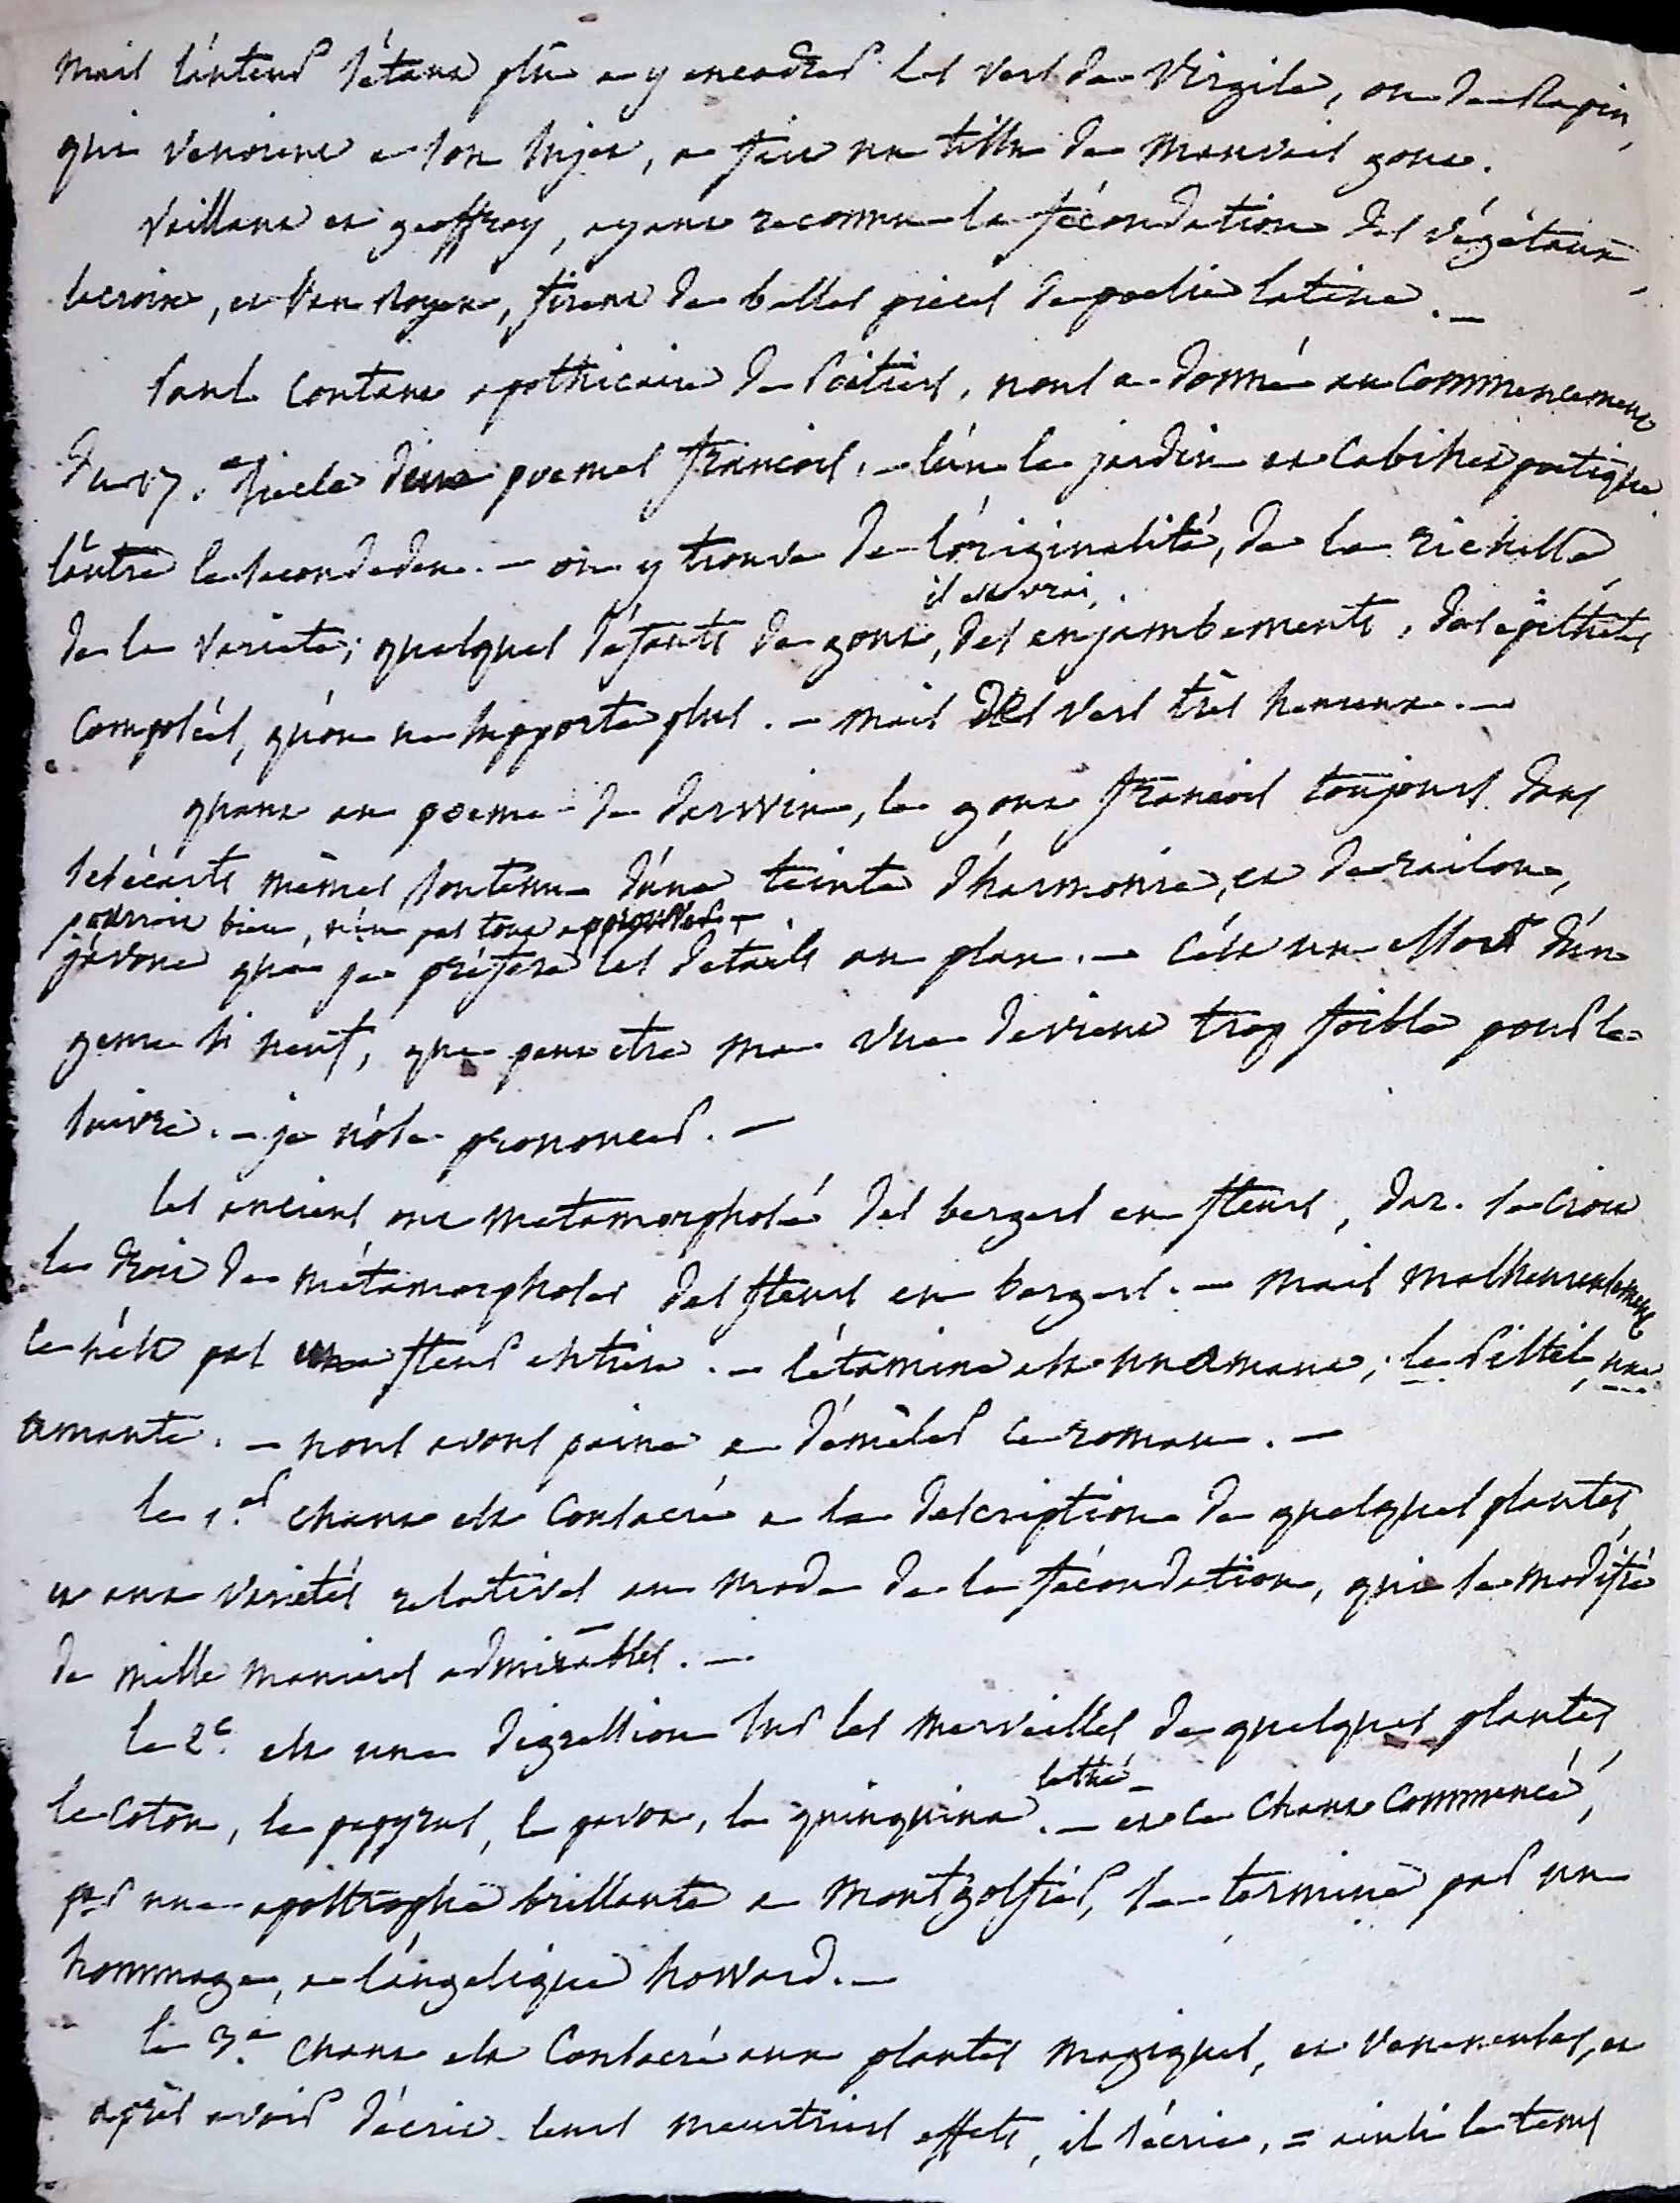 mais l'auteur s'étant plu a y encadrer les vers de Virgile, ou de Rapin,
qui venoient a son sujet, a fait un tissu de mauvais gout.
Vaillant et geoffroy, ayant reconnu la fécondation des végétaux,
lacroix, et Van royen, firent de belles pieces de poesie latine. —
Paul Contant apothicaire de Poitiers, nous a donné au commencement
du 17.e siecle deux poemes francois. — l'un le jardin et cabinet poétique
l'autre le second eden. — on y trouve de l'originalité, de la richesse,
il est vrai,
de la varieté; quelques défauts de gout, des enjambements, des épithetes
composées, qu'on ne supporte plus. — mais des vers très heureux. —
quant au poeme de darwin, le gout francois toujours dans
ses écarts mêmes soutenu d'une teinte d'harmonie, et de raison,
pourroit bien, n'en pas tout approuver —
j'avoue que je préfere les details au plan. — c'est un essort d'un
genre si neuf, que peut etre ma vue devient trop foible pour le
suivre. — je n'ose prononcer. —
les anciens ont metamorphosé des bergers en fleurs, dar. se croit
le droit de métamorphoser des fleurs en bergers. — mais malheureusement
ce n'est pas une fleur entiere. — l'étamine est un amant; le Pistil, une
amante. — nous avons peine a démêler ce roman. —
le 1.er chant est consacré a la description de quelques plantes,
et aux varietés relatives au mode de la fécondation, qui se modifie
de mille manieres admirables. —
le 2.e est une digression sur les merveilles de quelques plantes,
le thé —
le coton, le papyrus, le pavot, le quinquina. — et ce chant commencé,
par une apostrophe brillante a Montgolfier, se termine par un
hommage, a l'angelique howard. —
le 3.e chant est consacré aux plantes magiques, et veneneuses, et
après avoir décrit leurs meurtriers effets, il s'écrie, = ainsi le tems